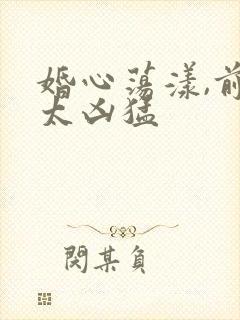 婚心荡漾,前
太凶猛
閔某負